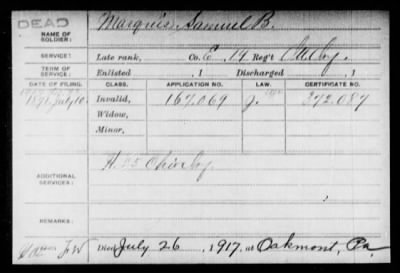 DEAD
NAME OF SOLDIER: Marquis, Samuel B.
SERVICE: Late rank, Co. E, 14 Reg't Cav.
TERM OF SERVICE: Enlisted , 1 Discharged , 1
DATE OF FILING. CLASS. APPLICATION NO. LAW. CERTIFICATE NO.
July 10 Invalid, 167.069 J. 372.087
Widow,
Minor,
ADDITIONAL SERVICES: H. Ohio
REMARKS:
Died July 26, 1917, at Oakmont, Pa